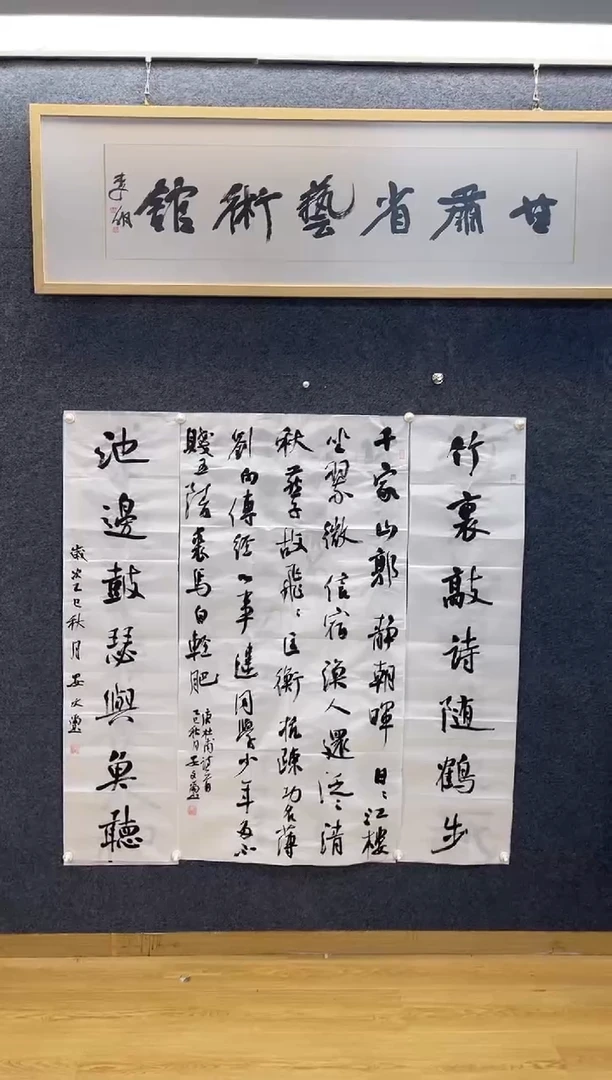 甘肅省藝術館
竹裏敲詩隨鶴步
千家山郭靜朝暉日〻江樓
坐翠微信宿漁人還泛〻清
秋燕子故飛〻匡衡抗疏功名薄
劉向傳經心事違同學少年多不
賤五陵裘馬自輕肥
唐杜甫詩一首
乙巳秋月
池邊鼓瑟與魚聽
歲次乙巳秋月